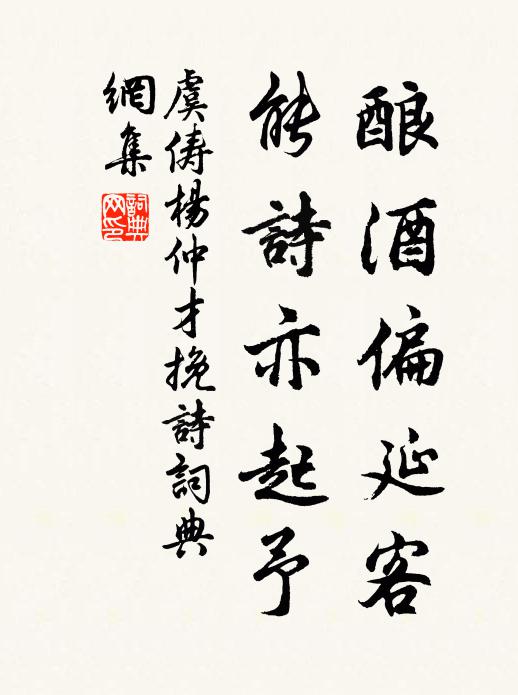 酿酒偏延客
能詩亦起予
虞儔楊仲才挽詩詞典
網集
詞典網印